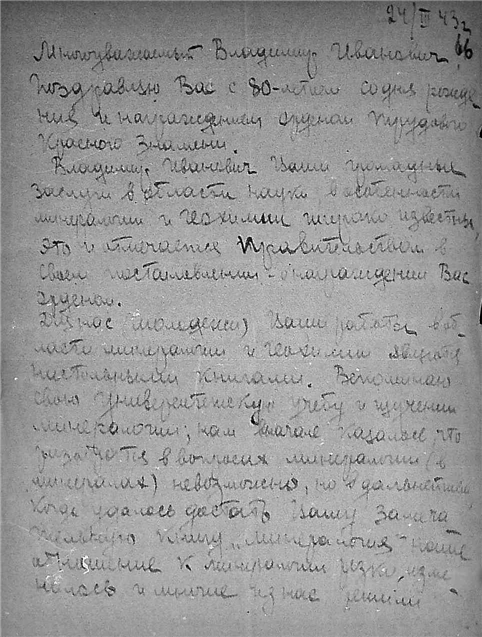 24/III 43 г
66
Многоуважаемый Владимир Иванович!
Поздравляю Вас с 80-летием со дня рожде
ния и награждением орденом Трудового
Красного Знамени.
Владимир Иванович Ваши громадные
заслуги в области науки в особенности
минералогии и геохимии широко известны,
это и отмечается Правительством в
своем постановлении о награждении Вас
орденом.
Для нас (молодежи) Ваши работы в об
ласти минералогии и геохимии являются
настольными книгами. Вспоминаю
свою Университетскую учебу и изучении
минералогии; нам вначале казалось что
разобраться в вопросах минералогии (в
минералах) невозможно, но в дальнейшем,
когда удалось достать Вашу замеча
тельную книгу „Минералогия" наше
отношение к минералогии резко изме
нилось и многие из нас решили